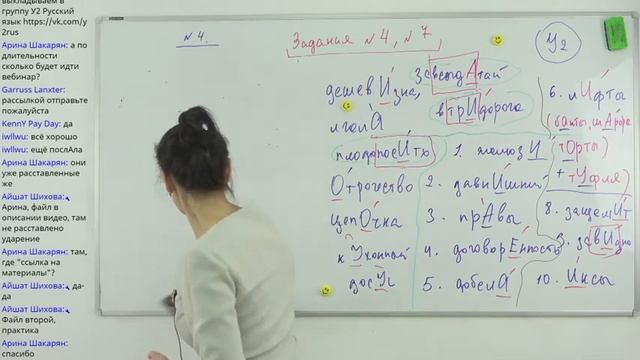 выкладываем в
группу У2 Русский
язык https://vk.com/y
2rus
Арина Шакарян: а по
длительности
сколько будет идти
вебинар?
Garruss Lanxter:
рассылкой отправьте
пожалуйста
KennY Pay Day: да
iwllwu: всё хорошо
iwllwu: ещё послАла
Арина Шакарян: они
уже расставленные
же
Айшат Шихова:
Арина, файл в
описании видео, там
не расставлено
ударение
Арина Шакарян: там,
где "ссылка на
материалы"?
Айшат Шихова: да-
да
Айшат Шихова:
Файл второй,
практика
Арина Шакарян:
спасибо
№4.
Задания №4, №7
У2
дешевИзна,
завсегдАтай
втрИдорога
лгалА
плодоносИть
Отрочество
цепОчка
кУхонный
досУг
1. жалюзИ
2. давнИшний
3. прАвы
4. договорЁнность
5. добелА
6. лИфты
(бАнты, шАрфы
тОрты)
+ тУфля)
8. защемИт
9. завИдно
10. Иксы